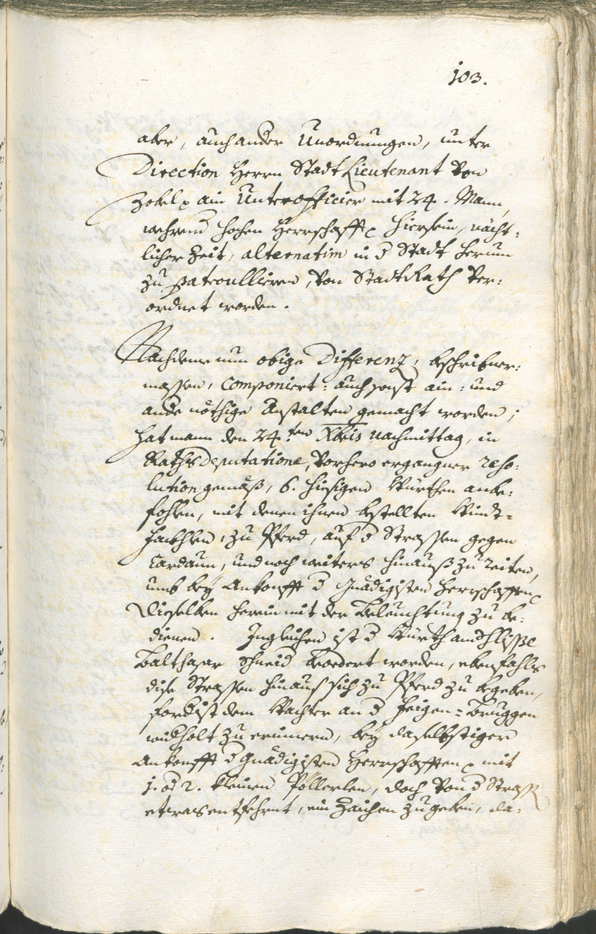 103.
aber, auch ander Unordnungen, unter
Direction Herrn Stadt Lieutenant von
Zobel ein Unterofficier mit 24. Mann,
während hochen Herrschafft hierseins, nächt-
licher Zeit, alternatim in d Stadt herumb
zu patroulliren, von Stadt Rath ver-
ordnet worden.
Nachdeme nun obige Differenz, beschribner-
massen, componiert: auch sonst ain: und
andere nöthige Anstalten gemacht worden;
hat man den 24.ten Xbris nachmittag, in
Raths Deputatione, vorhero ergangner reso-
lution gemäß, 6. hiesigen Würthen anbe-
fohlen, mit denen ihnen bestellten Windt-
facklen, zu Pferd, auf d Strassen gegen
Cardaun, und noch weiters hinauß zu reiten,
umb bey Ankonfft d Gnädigisten Herrschafften
Dieselben herein mit der Beleuchtung zu be-
dienen. Ingleichen ist d Würth
Balthasar Schneid beordert worden, ebenfahls
dise Strassen hinauf sich zu Pferd zu begeben,
dem Wachter an d Feigen-Bruggen
widerholt zu erinnern, bey daselbstiger
Ankonfft d Gnädigisten Herrschafften mit
1. od 2. kleinen Böllerlen, doch von d Strass
etwas entfehrnt, ein Zaichen zu geben, da-